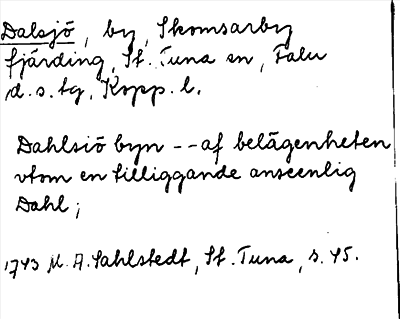 Dalsjö, by, Skomsarby
fjärding, St. Tuna sn, Falu
d.s. tg, Kopp. l.
Dahlsiö byn -- af belägenheten
vtom en tilliggande anseenlig
Dahl;
1743 M. A. Sahlstedt, St. Tuna, s. 45.